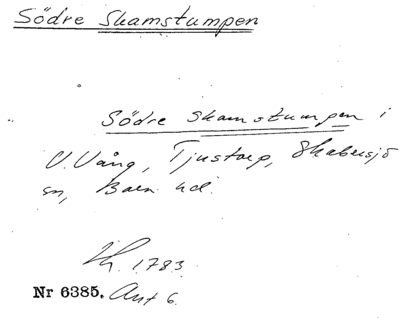 Södre Skamstumpen
Södre Skamstumpen i
V. Vång, Tjustorp, Skabersjö
sn, Bara hd.
Lh. 1783.
Nr 6385. Ant 6.